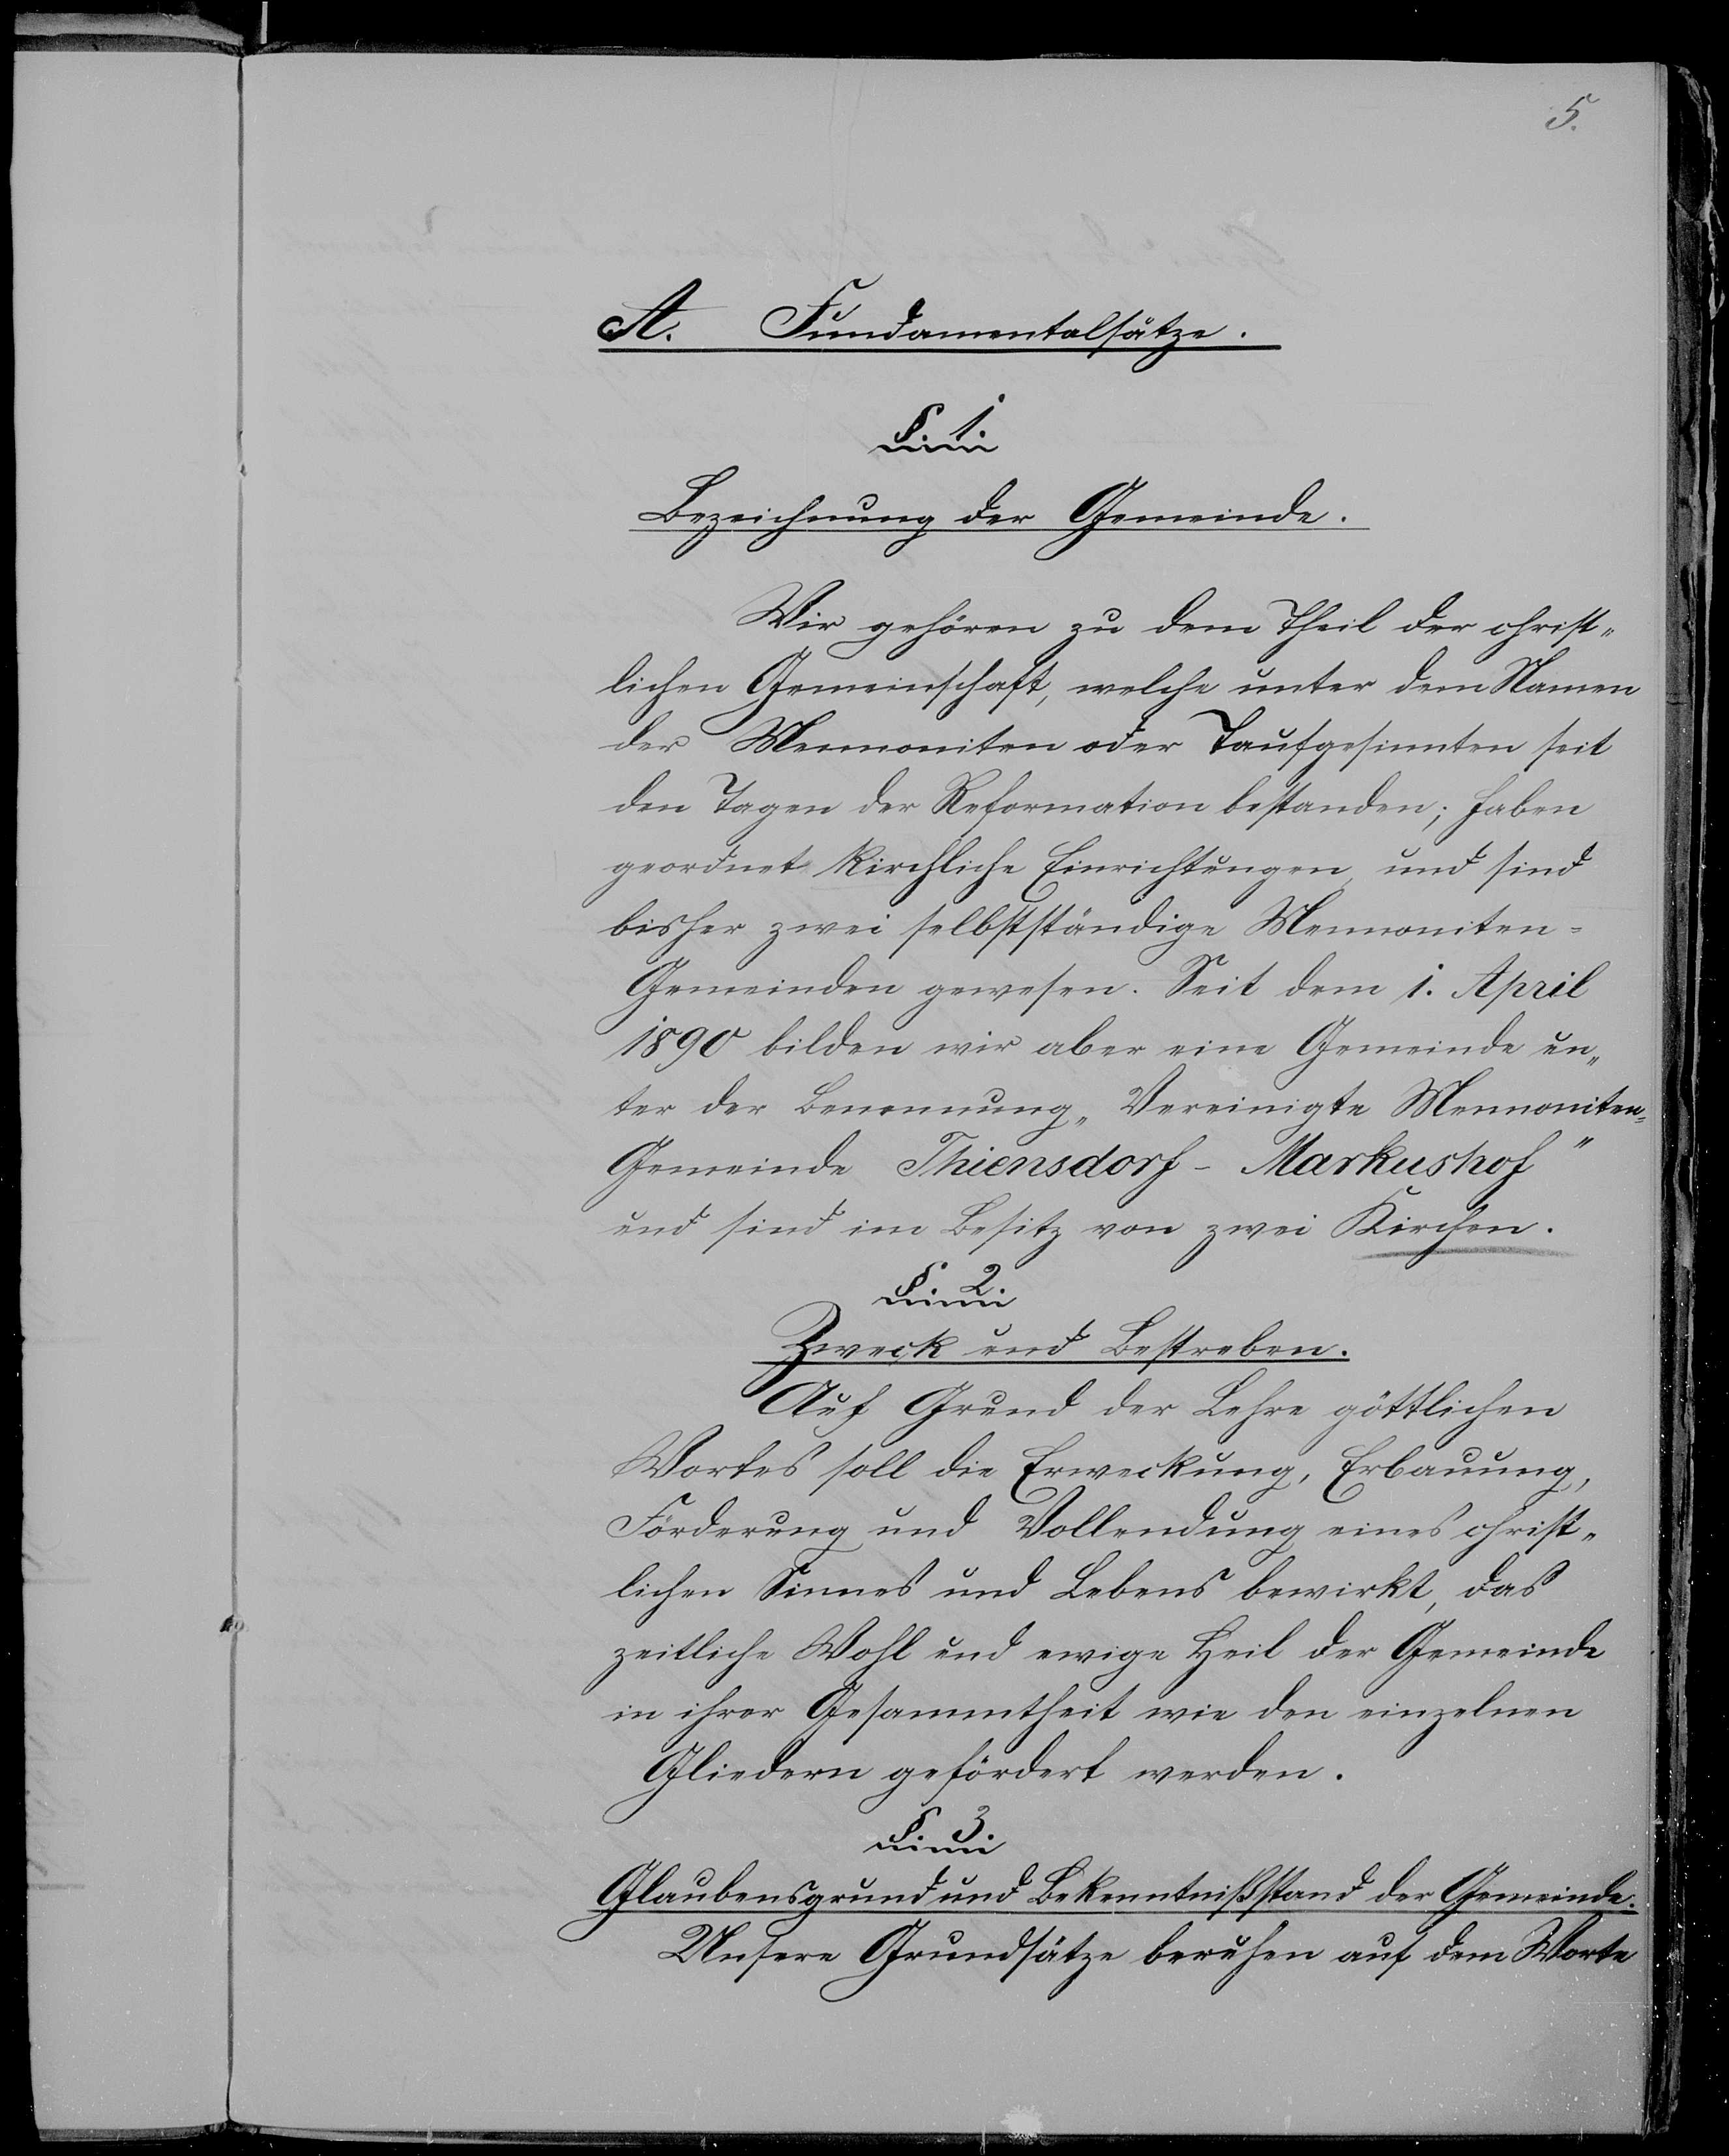 5.
A. Fundamentalsätze.
§. 1.
Bezeichnung der Gemeinde.
Wir gehören zu dem Theil der christ„
lichen Gemeinschaft, welche unter dem Namen
der Mennoniten oder Taufgesinnten seit
den Tagen der Reformation bestanden; haben
geordnet kirchliche Einrichtungen, und sind
bisher zwei selbstständige Mennoniten=
Gemeinden gewesen. Seit dem 1. April
1890 bilden wir aber eine Gemeinde un„
ter der Benennung „Vereinigte Mennoniten=
Gemeinde Thiensdorf - Markushof"
und sind im Besitz von zwei Kirchen.
§. 2.
Zweck und Bestreben.
Auf Grund der Lehre göttlichen
Wortes soll die Erweckung, Erbauung,
Förderung und Vollendung eines christ„
lichen Sinnes und Lebens bewirkt, das
zeitliche Wohl und ewige Heil der Gemeinde
in ihrer Gesammtheit wie den einzelnen
Gliedern gefördert werden.
§. 3.
Glaubensgrund und Bekenntnißstand der Gemeinde.
Unsere Grundsätze beruhen auf dem Worte